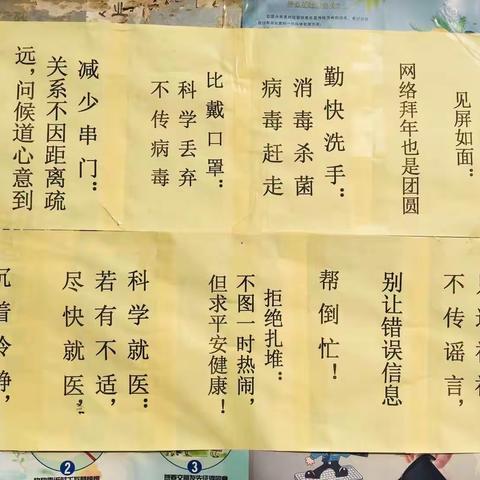 见屏如面：
网络拜年也是团圆
勤快洗手：
消毒杀菌
病毒赶走
比戴口罩：
科学丢弃
不传病毒
减少串门：
关系不因距离疏
远，问候道心意到
不传谣言，
别让错误信息
帮倒忙！
拒绝扎堆：
不图一时热闹，
但求平安健康！
科学就医：
若有不适，
尽快就医，
沉着冷静，
2
3